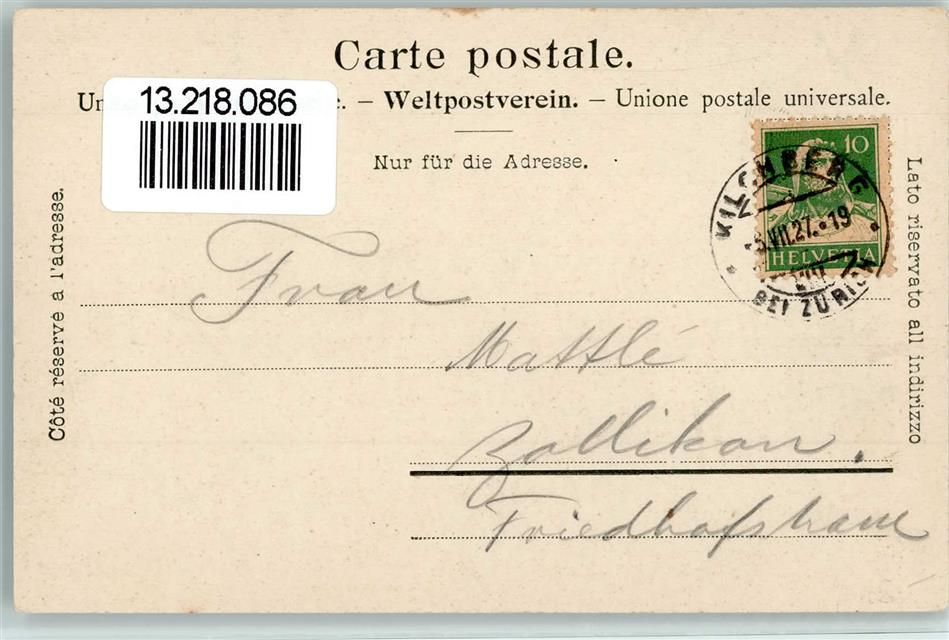 Carte postale.
13.218.086
Un e. – Weltpostverein. – Unione postale universale.
Nur für die Adresse.
10
HELVETIA
KILCHBERG
VII.27.-19
BEI ZÜRICH
Côté réservé à l'adresse.
Lato riservato all indirizzo
Frau
Mattlé
Zollikon.